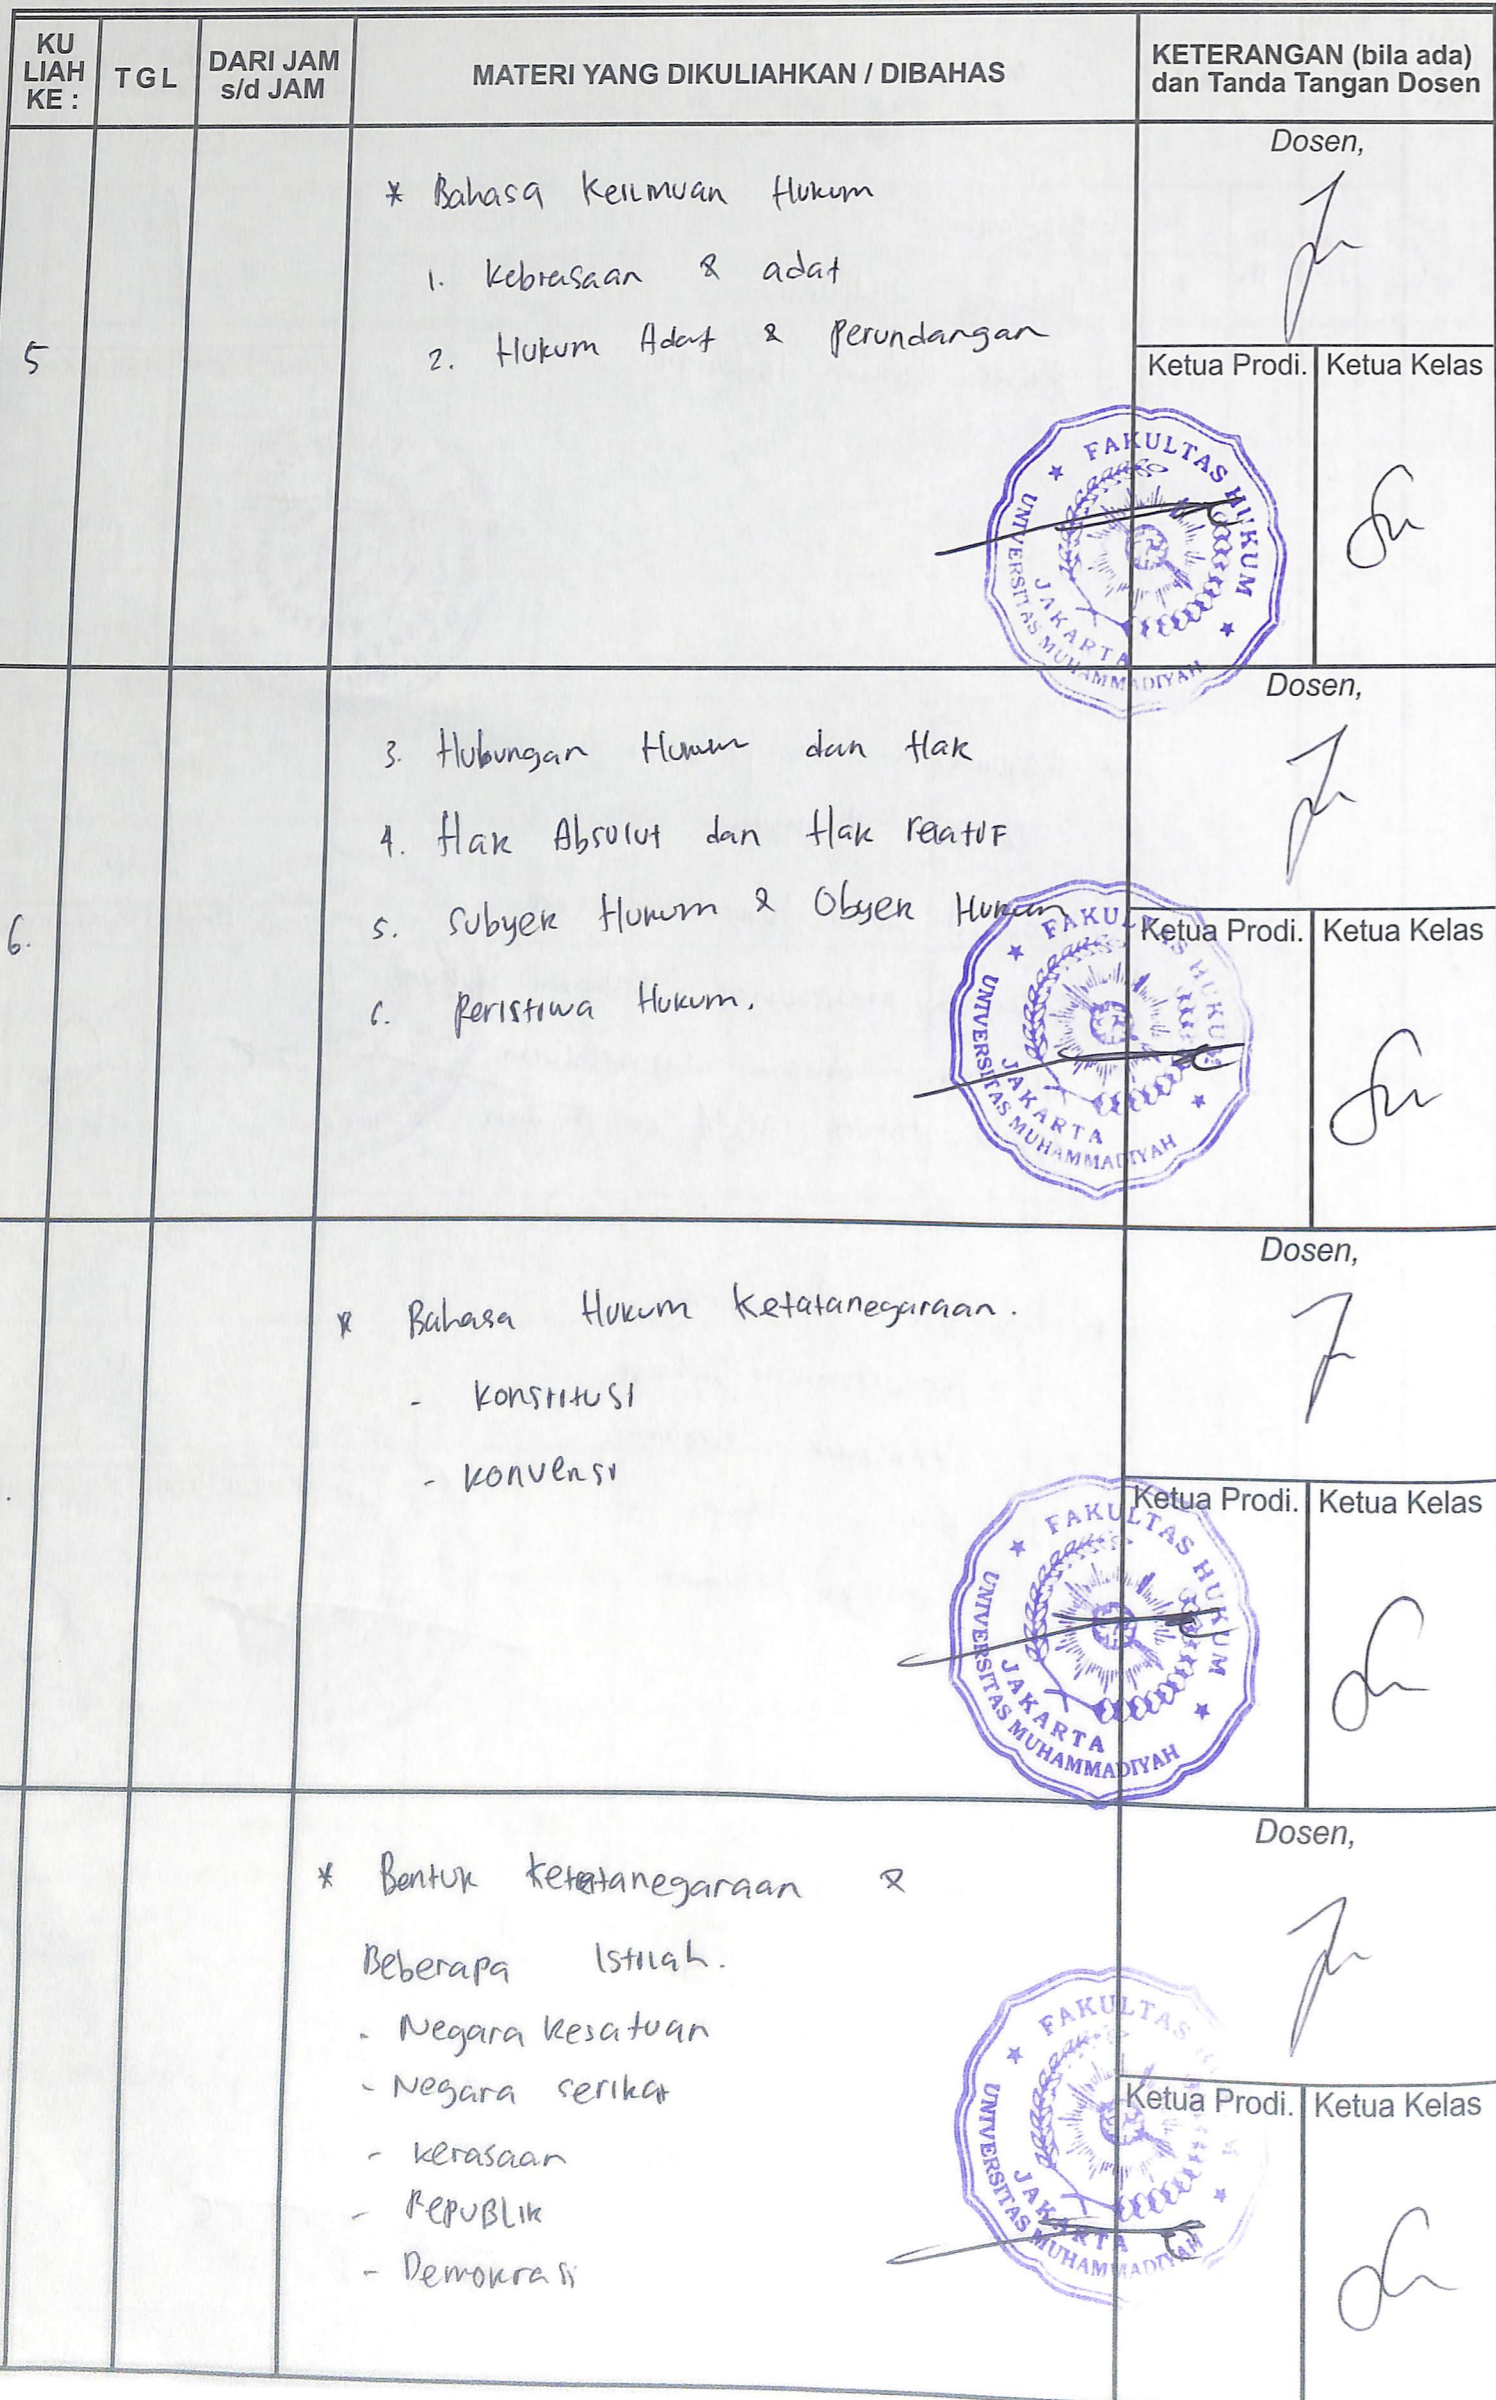 KU
LIAH
KE :
TGL
DARI JAM
s/d JAM
MATERI YANG DIKULIAHKAN / DIBAHAS
KETERANGAN (bila ada)
dan Tanda Tangan Dosen
5
* Bahasa Keilmuan Hukum
1. Kebiasaan & adat
2. Hukum Adat & Perundangan
Dosen,
Ketua Prodi.
Ketua Kelas
FAKULTAS HUKUM
UNIVERSITAS MUHAMMADIYAH
JAKARTA
6.
3. Hubungan Hukum dan Hak
4. Hak Absolut dan Hak relatif
5. Subyek Hukum & Obyek Hukum
6. Peristiwa Hukum.
Dosen,
Ketua Prodi.
Ketua Kelas
FAKULTAS HUKUM
UNIVERSITAS MUHAMMADIYAH
JAKARTA
* Bahasa Hukum Ketatanegaraan.
- Konstitusi
- Konvensi
Dosen,
Ketua Prodi.
Ketua Kelas
FAKULTAS HUKUM
UNIVERSITAS MUHAMMADIYAH
JAKARTA
* Bentuk Ketatanegaraan &
Beberapa Istilah.
- Negara Kesatuan
- Negara serikat
- Kerasaan
- Republik
- Demokrasi
Dosen,
Ketua Prodi.
Ketua Kelas
FAKULTAS
UNIVERSITAS MUHAMMADIYAH
JAKARTA